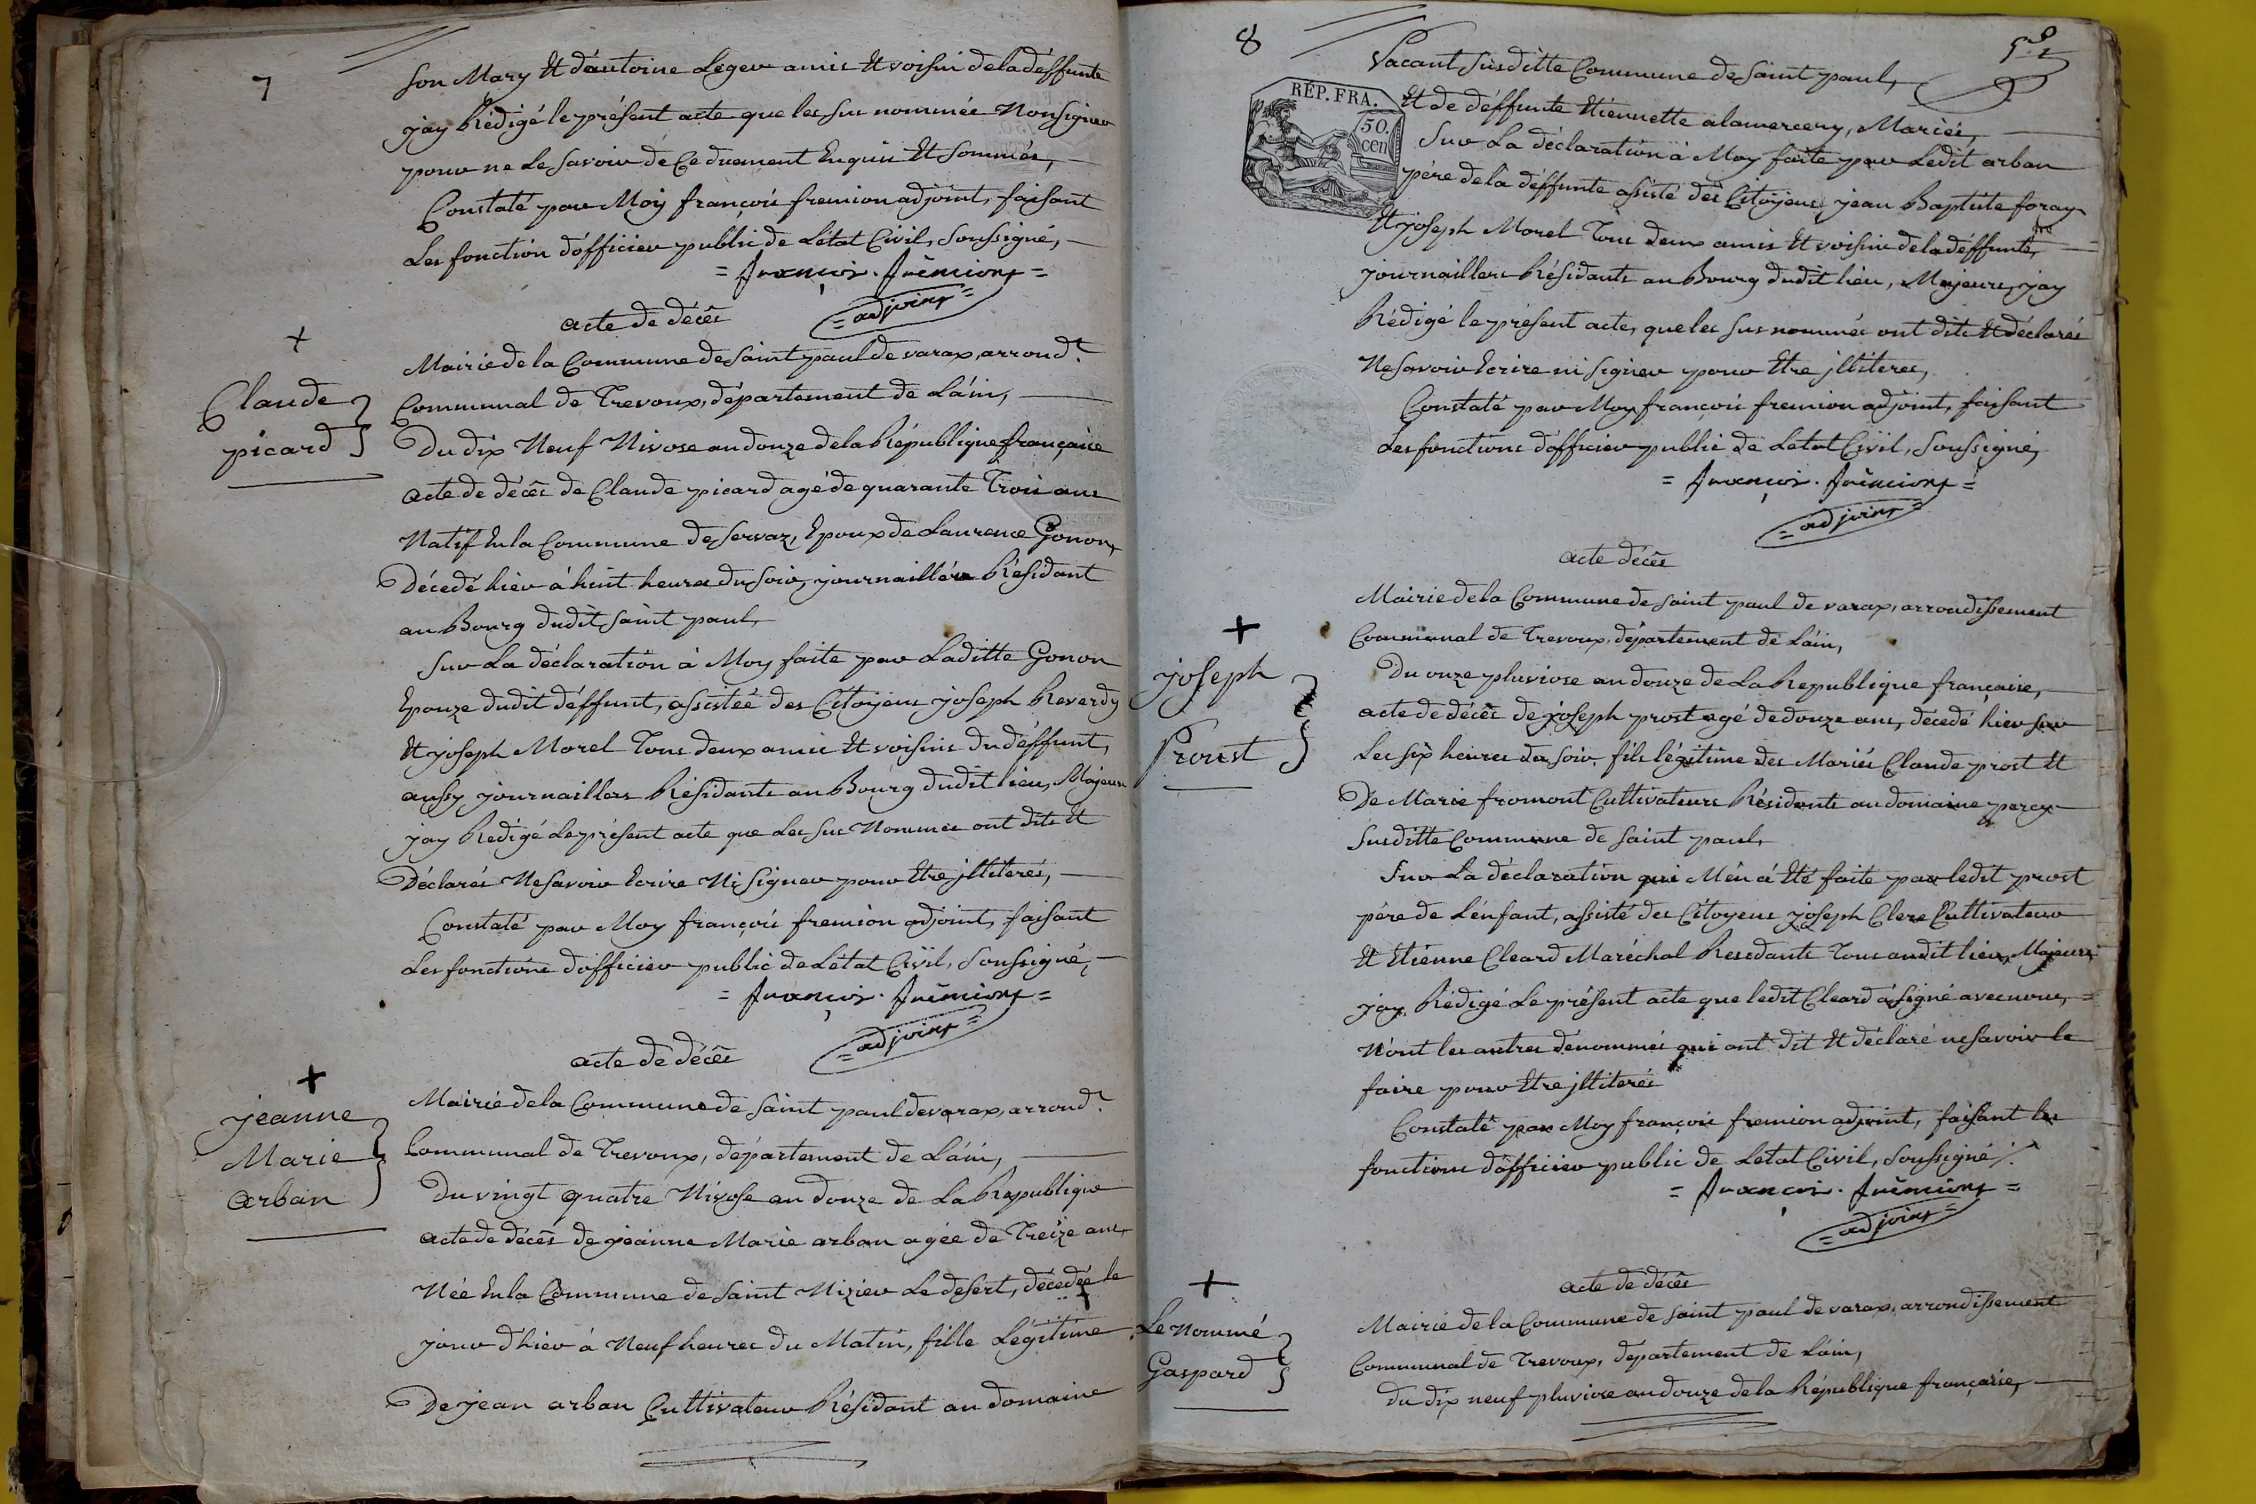 7
son Mary Et d'antoine Leger amis Et voisin de la deffunte
jay Rédigé le présent acte que les sus nommés Nonsigner
pour ne Le savoir de Ce duement Enquis Et Sommés,
Constaté par Moy françois fremion adjoint, faisant
Les fonction dofficier public de Létat Civil, Soussigné,
= françois. fremion =
= adjoint =
acte de décès
+
Claude
picard
Mairie de la Commune de Saint paul de varax, arrond.t
Communal de Trevoux, département de Láin,
Du dix Neuf Nivose an douze de la République française
acte de décès de Claude picard agé de quarante Trois ans
Natif En la Commune de Servaz, Epoux de Laurence Gonon,
Décédé hier à huit heures du soir, journaillér Résidant
au Bourg dudit saint paul,
Sur La déclaration à Moy faite par Laditte Gonon
Epouze dudit déffunt, assistée des Citoyens joseph Reverdy
Et joseph Morel Tous deux amis Et voisins du déffunt,
aussy journaillers Résidants au Bourg dudit lieu, Majeurs
jay Redigé Le présent acte que Les sus Nommés ont dits Et
Déclarés Ne savoir Ecrire Ni Signer pour Etre jlliterés,
Constaté par Moy françois fremion adjoint, faisant
Les fonctions dofficier public de Létat Civil, Soussigné,
= françois. fremion =
= adjoint =
acte de décès
+
jeanne
Marie
arban
Mairie de la Commune de Saint paul de varax, arrond.t
Communal de Trevoux, département de Láin,
Du vingt quatre Nivose an douze de La République
acte de décès de jeanne Marie arban agée de Treize ans,
Née En la Commune de Saint Nizier Le desert, décedée le
jour d'hier à Neuf heures du Matin, fille Légitime
De jean arban Cultivateur Résidant au domaine
8
Vacant susditte Commune de Saint paul,
RÉP. FRA.
50.
cen
Et de déffunte Etiennette alamercery, Mariés,
Sur La déclaration à Moy faite par Ledit arban
pére de la deffunte assisté des Citoyens jean Baptiste foray
Et joseph Morel Tous deux amis Et voisins de la déffunte,
journaillers Résidants au Bourg dudit lieu, Majeurs, jay
Rédigé le présent acte, que les sus nommés ont dits Et déclarés
Ne savoir Ecrire ni signer pour Etre jlliteres,
Constaté par Moy françois fremion adjoint, faisant
Les fonctions dofficier public de Letat Civil, Soussigné,
= françois. fremion =
= adjoint =
acte décès
+
joseph
Proust
Mairie de la Commune de saint paul de varax, arrondissement
Communal de Trevoux, département de Láin,
Du onze pluviose an douze de La Republique française,
acte de décès de joseph prost agé de douze ans, décedé hier sur
Les six heures du soir, fils légitime des Mariés Claude prost Et
De Marie fromont Cultivateurs Résidents au domaine
susditte Commune de saint paul,
Sur La déclaration qui M'en á Eté faite par ledit prost
pére de L'enfant, assisté des Citoyens joseph Clere Cultivateur
Et Etienne Cleard Maréchal Residants Tous audit lieu, Majeurs
jay Rédigé Le présent acte que ledit Cleard à signé avec nous,
N'ont les autres dénommés qui ont dit Et déclaré ne savoir le
faire pour Etre jlliterés
Constaté par Moy françois fremion adjoint, faisant les
fonctions dofficier public de Letat Civil, Soussigné
= françois. fremion =
= adjoint =
acte de décès
+
Le nommé
Gaspard
Mairie de la Commune de Saint paul de varax, arrondissement
Communal de Trevoux, département de Láin,
du dix neuf pluviose an douze de la République française,